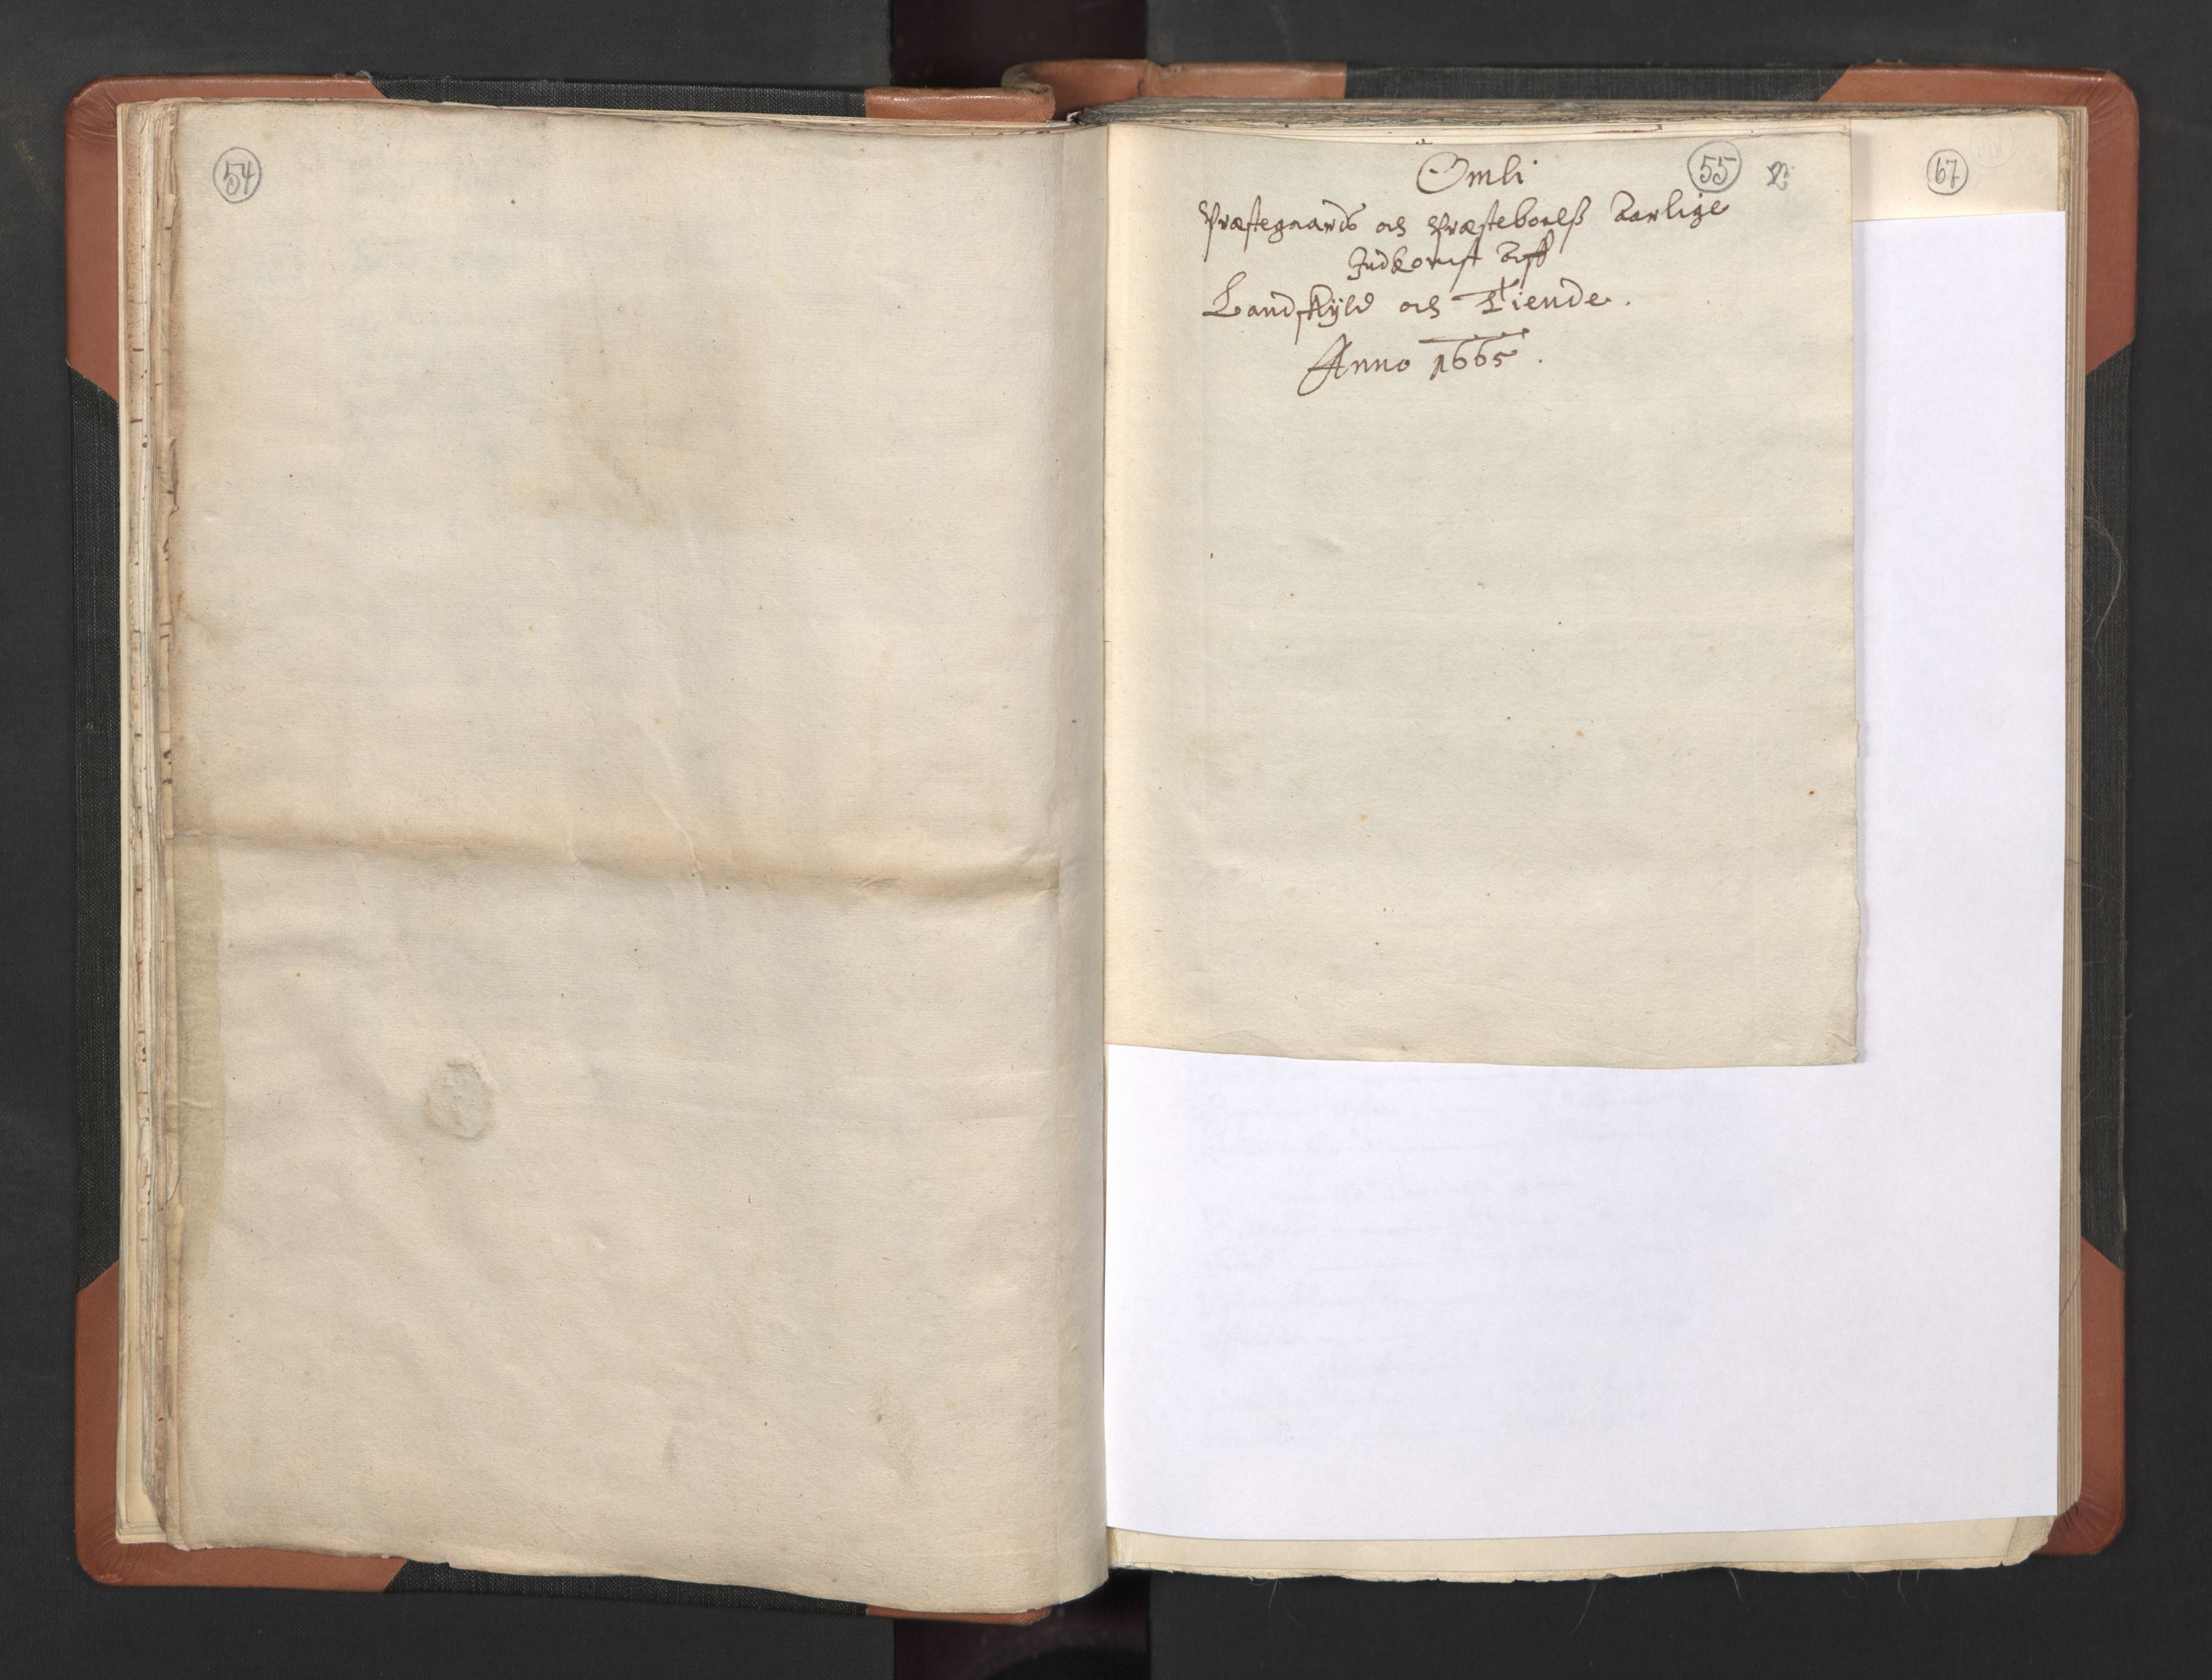 54
Ömli
55
67
Præstegaards och Præsteborlß Aarlige
Indkomst Aff
Landskyld och Tiende.
Anno 1665.